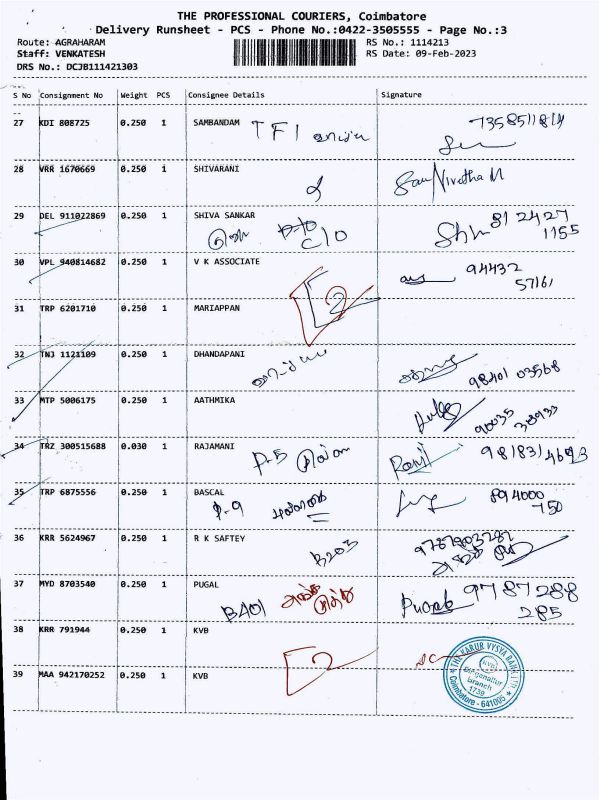 THE PROFESSIONAL COURIERS, Coimbatore
Delivery Runsheet - PCS - Phone No.:0422-3505555 - Page No.:3
Route: AGRAHARAM RS No.: 1114213
Staff: VENKATESH RS Date: 09-Feb-2023
DRS No.: DCJB111421303
S No Consignment No Weight PCS Consignee Details Signature
27 KDI 808725 0.250 1 SAMBANDAM TFI
28 VRR 1670669 0.250 1 SHIVARANI
29 DEL 911022869 0.250 1 SHIVA SANKAR 812427
C/O 1155
30 VPL 940814682 0.250 1 V K ASSOCIATE 94432
57161
31 TRP 6201710 0.250 1 MARIAPPAN 2
32 TNJ 1121109 0.250 1 DHANDAPANI
98401 03568
33 MTP 5006175 0.250 1 AATHMIKA
34 TRZ 300515688 0.030 1 RAJAMANI
35 TRP 6875556 0.250 1 BASCAL 894000
750
36 KRR 5624967 0.250 1 R K SAFTEY
B203
37 MYD 8703540 0.250 1 PUGAL 9787288
B401 285
38 KRR 791944 0.250 1 KVB
39 MAA 942170252 0.250 1 KVB 2
THE KARUR VYSYA BANK LTD
KVB
branch
1739
Coimbatore - 641005